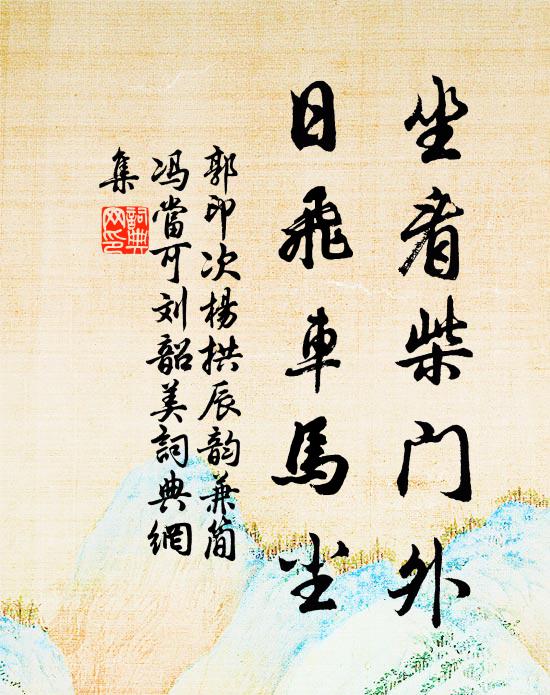 坐看柴门外
日飛車馬尘
郭印次楊拱辰韵兼简
冯當可刘韶美詞典網
集
詞典
网印